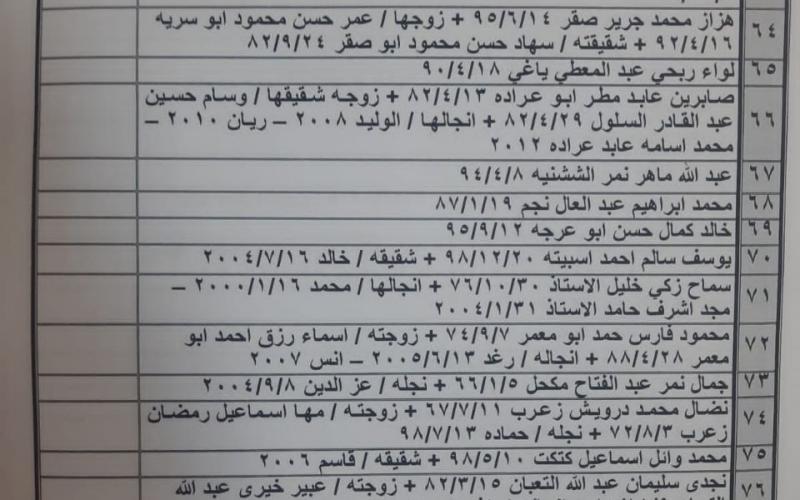 ٦٤ هزاز محمد جرير صقر ٩٥/٦/١٤ + زوجها / عمر حسن محمود ابو سريه
٩٢/٤/١٦ + شقيقته / سهاد حسن محمود ابو صقر ٨٢/٩/٢٤
٦٥ لواء ربحي عبد المعطي ياغي ٩٠/٤/١٨
٦٦ صابرين عابد مطر ابو عراده ٨٢/٤/١٣ + زوجة شقيقها / وسام حسين
عبد القادر السلول ٨٢/٤/٢٩ + انجالها / الوليد ٢٠٠٨ – ريان ٢٠١٠ –
محمد اسامه عابد عراده ٢٠١٢
٦٧ عبد الله ماهر نمر الششنيه ٩٤/٤/٨
٦٨ محمد ابراهيم عبد العال نجم ٨٧/١/١٩
٦٩ خالد كمال حسن ابو عرجه ٩٥/٩/١٢
٧٠ يوسف سالم احمد اسبيته ٩٨/١٢/٢٠ + شقيقه / خالد ٢٠٠٤/٧/١٦
٧١ سماح زكي خليل الاستاذ ٧٦/١٠/٣٠ + انجالها / محمد ٢٠٠٠/١/١٦ –
مجد اشرف حامد الاستاذ ٢٠٠٤/١/٣١
٧٢ محمود فارس حمد ابو معمر ٧٤/٩/٧ + زوجته / اسماء رزق احمد ابو
معمر ٨٨/٤/٢٨ + انجاله / رغد ٢٠٠٥/٦/١٣ – انس ٢٠٠٧
٧٣ جمال نمر عبد الفتاح مكحل ٦٦/١/٥ + نجله / عز الدين ٢٠٠٤/٩/٨
٧٤ نضال محمد درويش زعرب ٦٧/٧/١١ + زوجته / مها اسماعيل رمضان
زعرب ٧٢/٨/٣ + نجله / حماده ٩٨/٧/١٣
٧٥ محمد وائل اسماعيل كتكت ٩٨/٥/١٠ + شقيقه / قاسم ٢٠٠٦
٧٦ نجدى سليمان عبد الله التعبان ٨٢/٣/١٥ + زوجته / عبير خيرى عبد الله